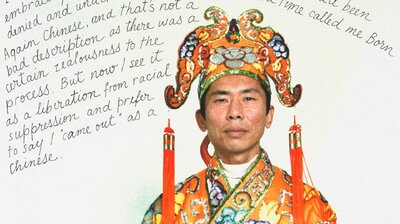 embra
had been
denied and und
time called me Born
Again Chinese, and that's not a
bad description as there was a
certain zealousness to the
process. But now I see it
as a liberation from racial
suppression and prefer
to say I "came out" as a
Chinese.